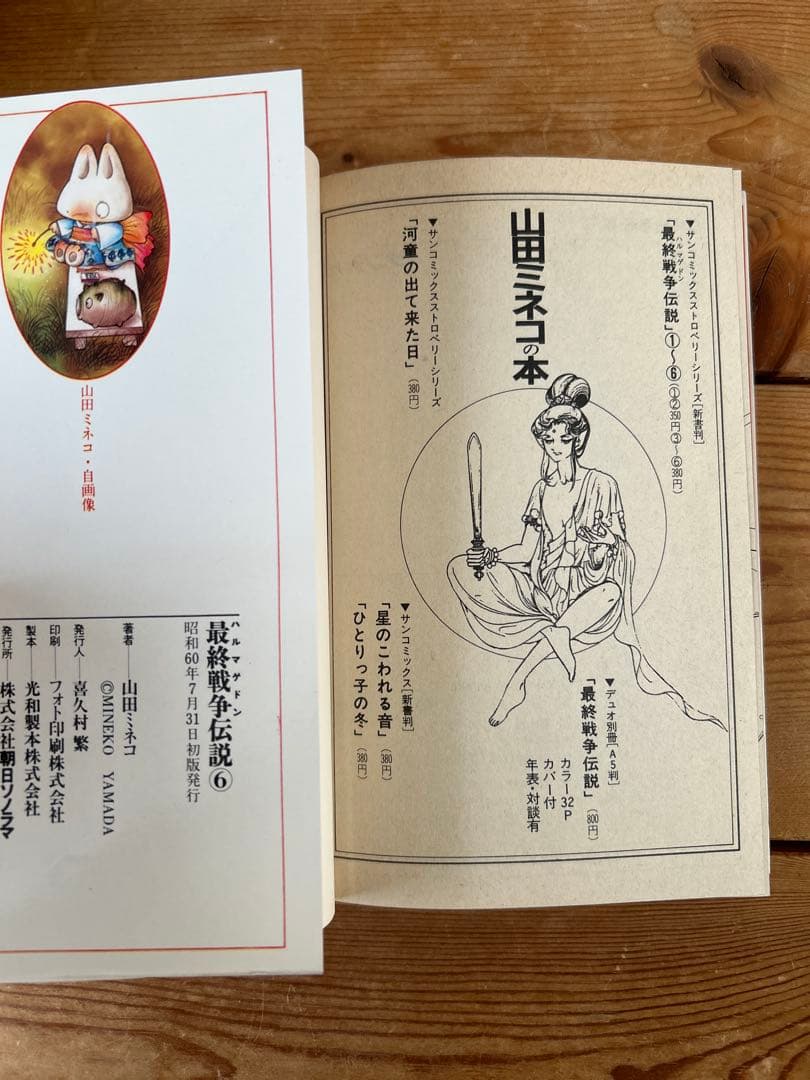 ▼サンコミックスストロベリーシリーズ[新書判]
ハルマゲドン
「最終戦争伝説」①〜⑥(①②350円③〜⑥380円)
山田ミネコの本
▼サンコミックスストロベリーシリーズ
「河童の出て来た日」(380円)
▼デュオ別冊[A5判]
「最終戦争伝説」(800円)
カラー32P
カバー付
年表・対談有
▼サンコミックス[新書判]
「星のこわれる音」(380円)
「ひとりっ子の冬」(380円)
山田ミネコ・自画像
ハルマゲドン
最終戦争伝説⑥
昭和60年7月31日初版発行
著者—山田ミネコ
©MINEKO YAMADA
発行人—喜久村 繁
印刷—フォト印刷株式会社
製本—光和製本株式会社
発行所 株式会社朝日ソノラマ